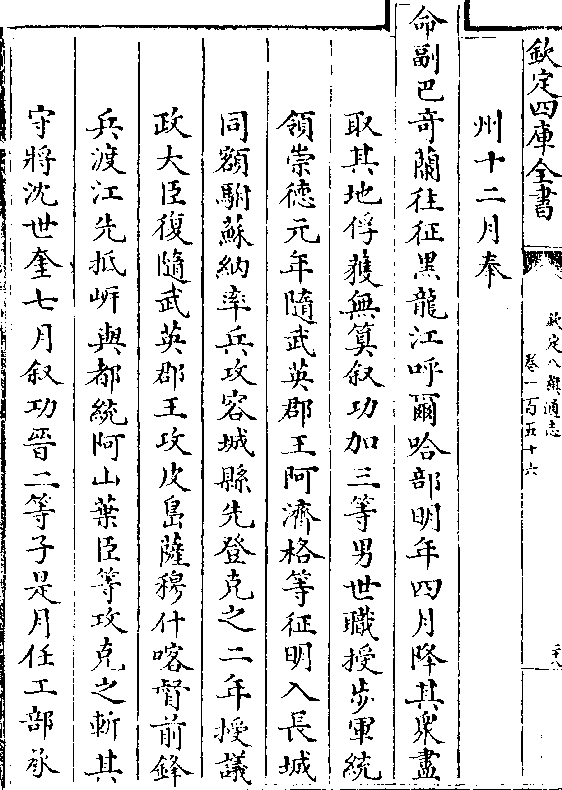 欽定四庫全書
欽定八旗通志
卷一百五十六
二十八
州十二月奉
命副巴奇蘭往征黑龍江呼爾哈部明年四月降其衆盡
取其地俘獲無算叙功加三等男世職授步軍統
領崇德元年隨武英郡王阿濟格等征明入長城
同額駙蘇納率兵攻容城縣先登克之二年授議
政大臣復隨武英郡王攻皮島薩穆什喀督前鋒
兵渡江先抵岍與都統阿山葉臣等攻克之斬其
守將沈世奎七月叙功晉二等子是月任工部承